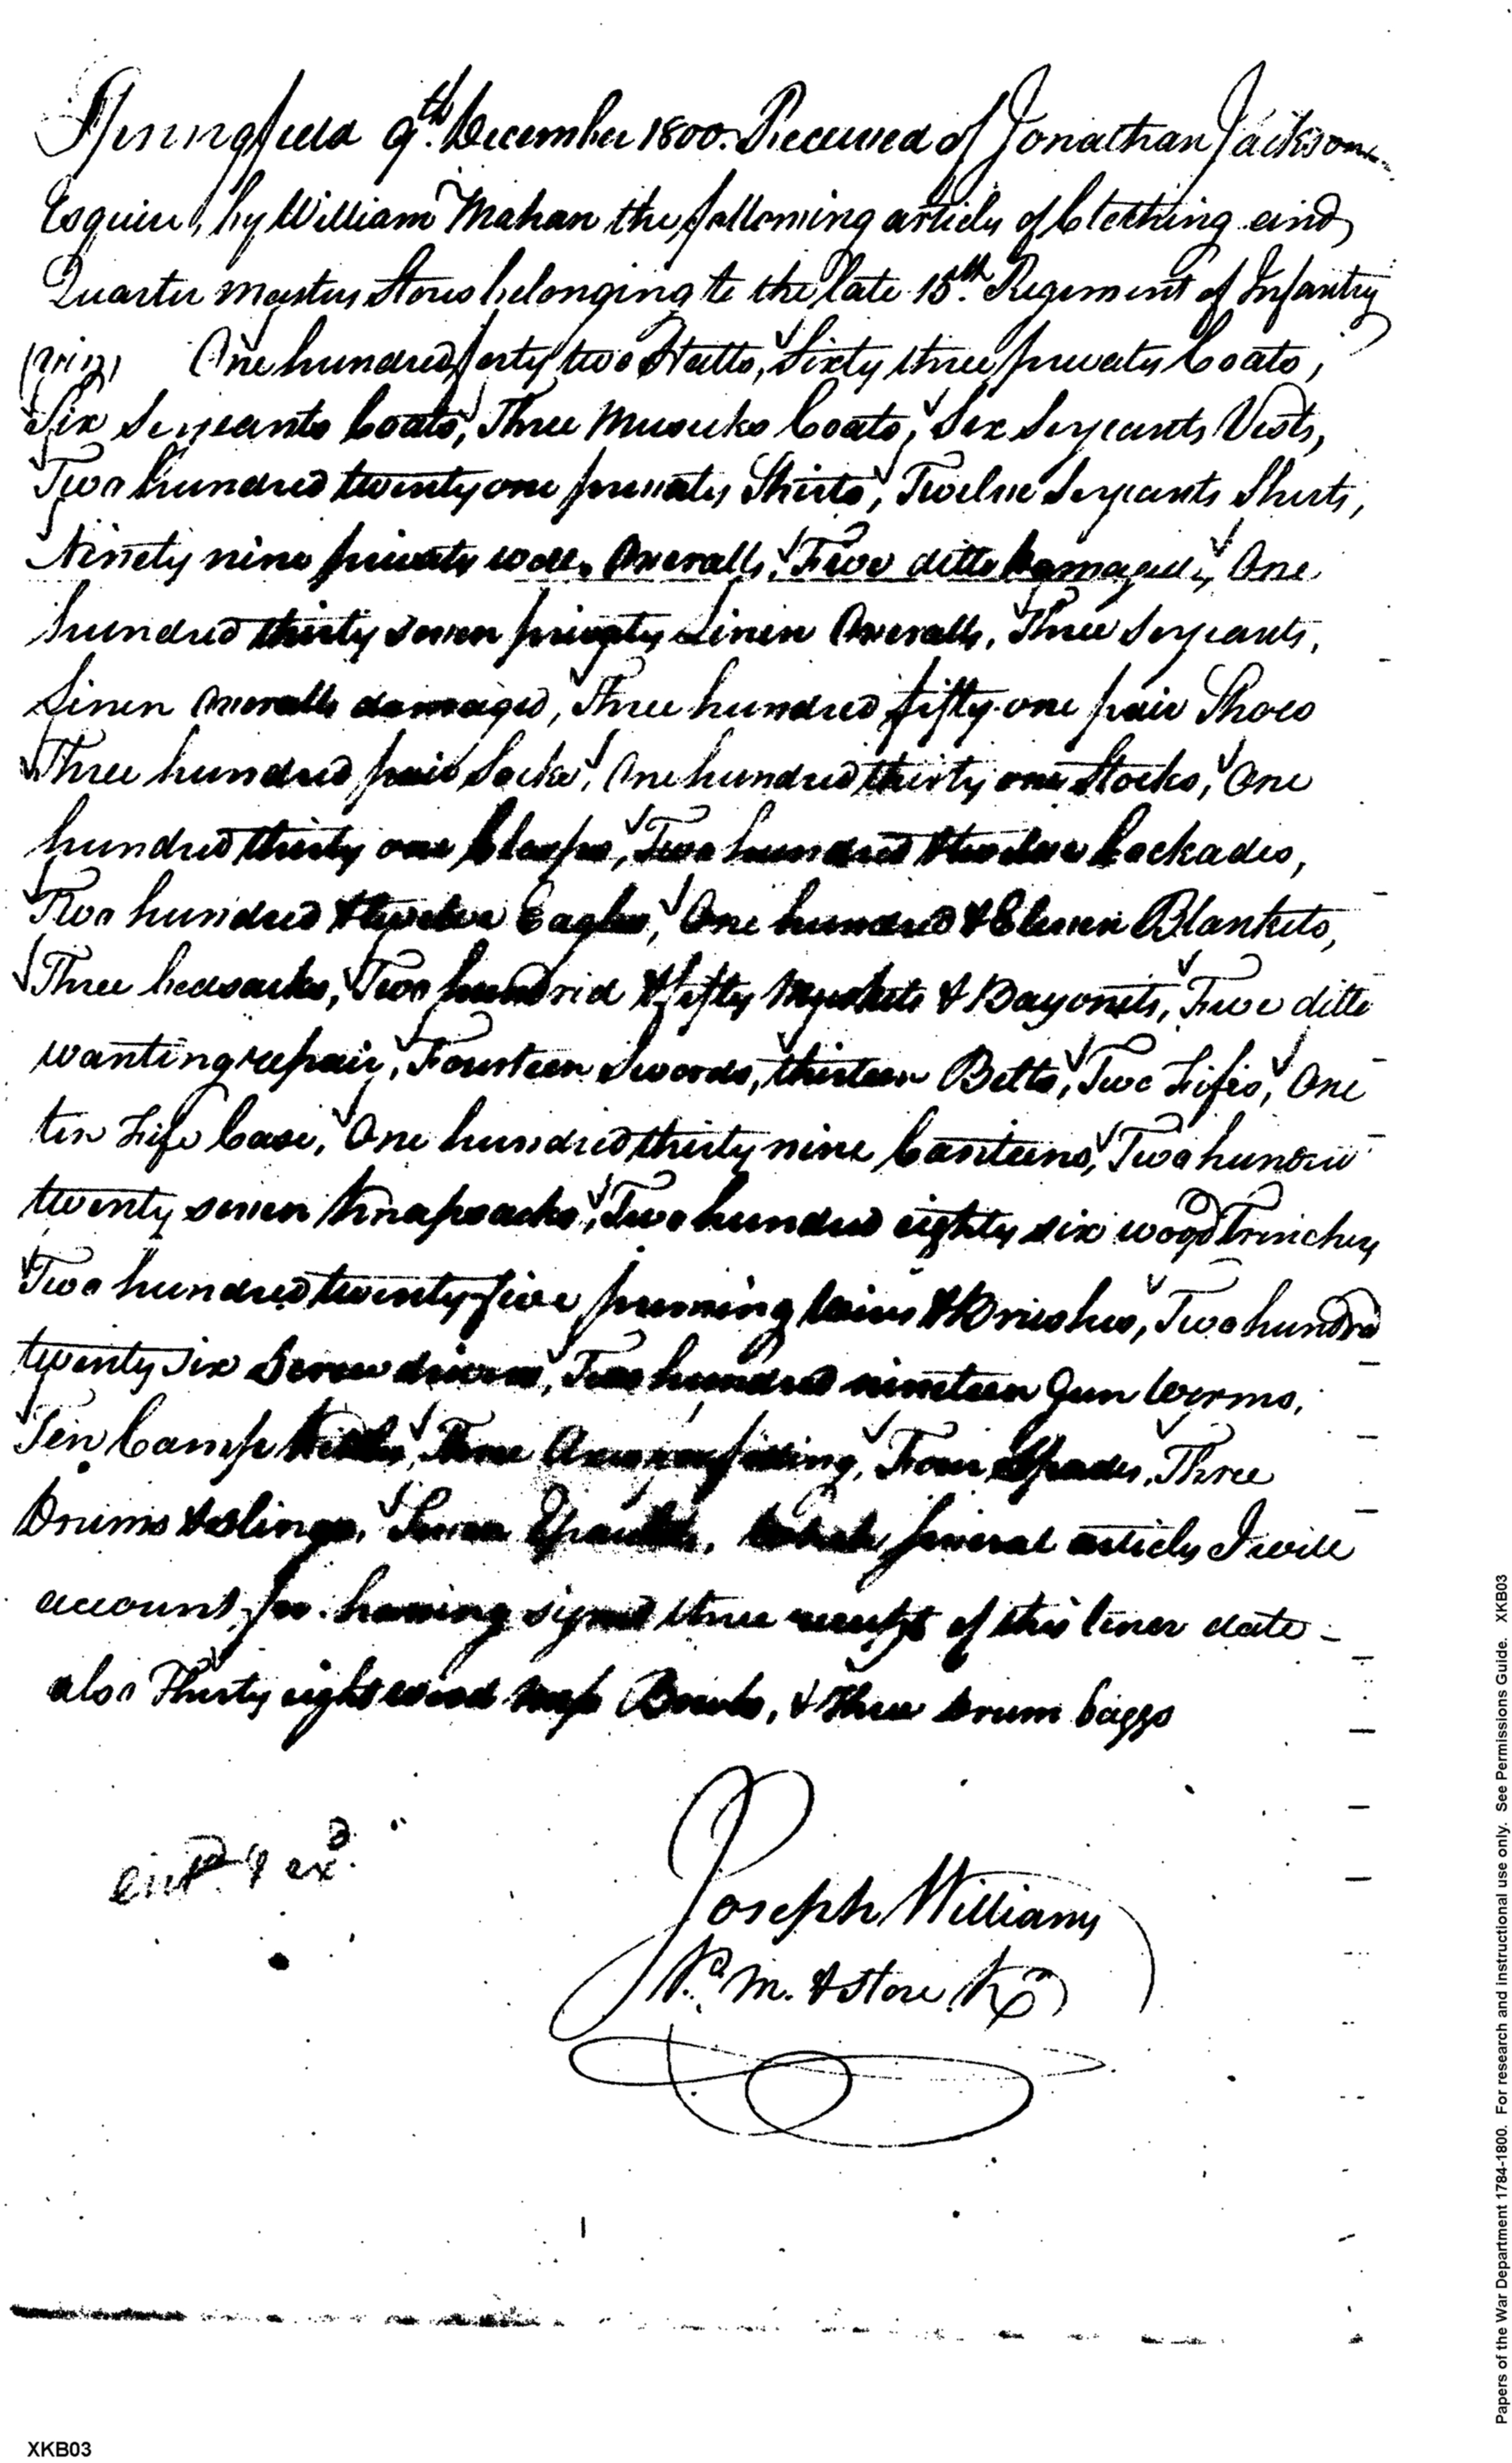 Springfield 9th. December 1800. Received of Jonathan Jackson
Esquire, by William Mahan the following articles of Clothing and
Quarter masters Stores belonging to the late 15th. Regiment of Infantry
(viz) One hundred forty two Hatts, Sixty three privates Coats,
Six Serjeants Coats, Three Musicks Coats, Six Serjeants Vests,
Two hundred twenty one privates Shirts, Twelve Serjeants Shirts,
Ninety nine privates wool. Overalls, Five ditto damaged, One
hundred thirty seven privates Linen Overalls, Three Serjeants,
Linen Overalls damaged, Three hundred fifty-one pair Shoes
Three hundred pair Socks, One hundred thirty one Stocks, One
hundred thirty one Clasps, Two hundred & twelve Cockades,
Two hundred & twelve Eagles, One hundred & Eleven Blankets,
Three bedsacks, Two hundred & fifty Muskets & Bayonets, Five ditto
wanting repair, Fourteen Swords, thirteen Belts, Two Fifes, One
tin Fife Case, One hundred thirty nine Canteens, Two hundred
twenty seven Knapsacks, Two hundred eighty six wood Trenchers
Two hundred twenty-five priming wires & Brushes, Two hundred
twenty six Screw drivers, Two hundred nineteen Gun Worms,
Ten Camp Kettles, Three Axes, Four Spades, Three
Drums & slings, Seven Epauletts, which several articles I will
account for having signed three receipts of this tenor date -
also Thirty eight wood Bowls, & three drum baggs
ent.d & ex.d
Joseph Williams
P.M. & Store Kr
Papers of the War Department 1784-1800. For research and instructional use only. See Permissions Guide. XKB03
XKB03